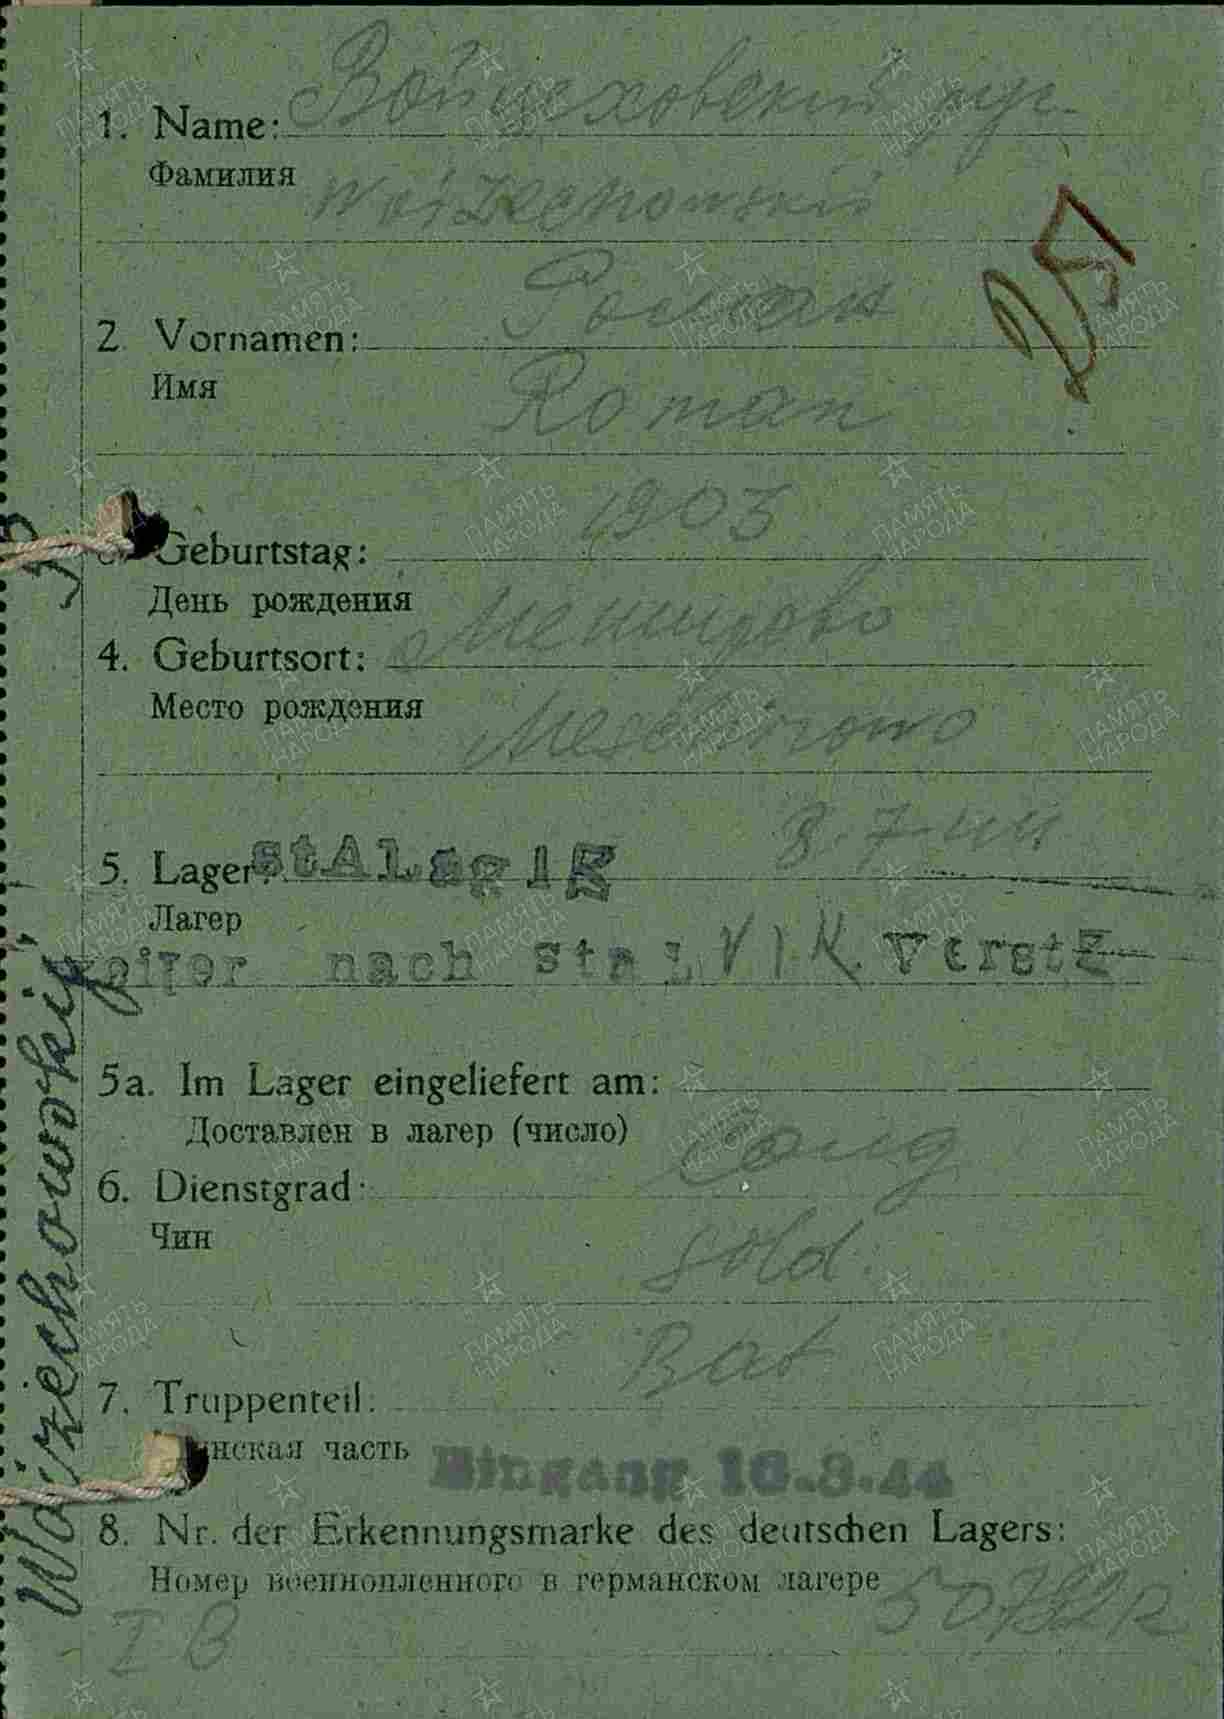 1. Name: Войцеховский рус-
Фамилия
Woizechowskii
25
2. Vornamen: Роман
Имя
Roman
Geburtstag: 1903
День рождения
4. Geburtsort:
Место рождения
5. Lager: stALag 1
8.7.44
Лагер
nach stal VI K verstz
5a. Im Lager eingeliefert am:
Доставлен в лагер (число)
6. Dienstgrad: Солд
Чин
sold.
7. Truppenteil: Bat
часть
Eingang 16.8.44
8. Nr. der Erkennungsmarke des deutschen Lagers:
Номер военнопленного в германском лагере
I B
Woizechowskij
ПАМЯТЬ
НАРОДА